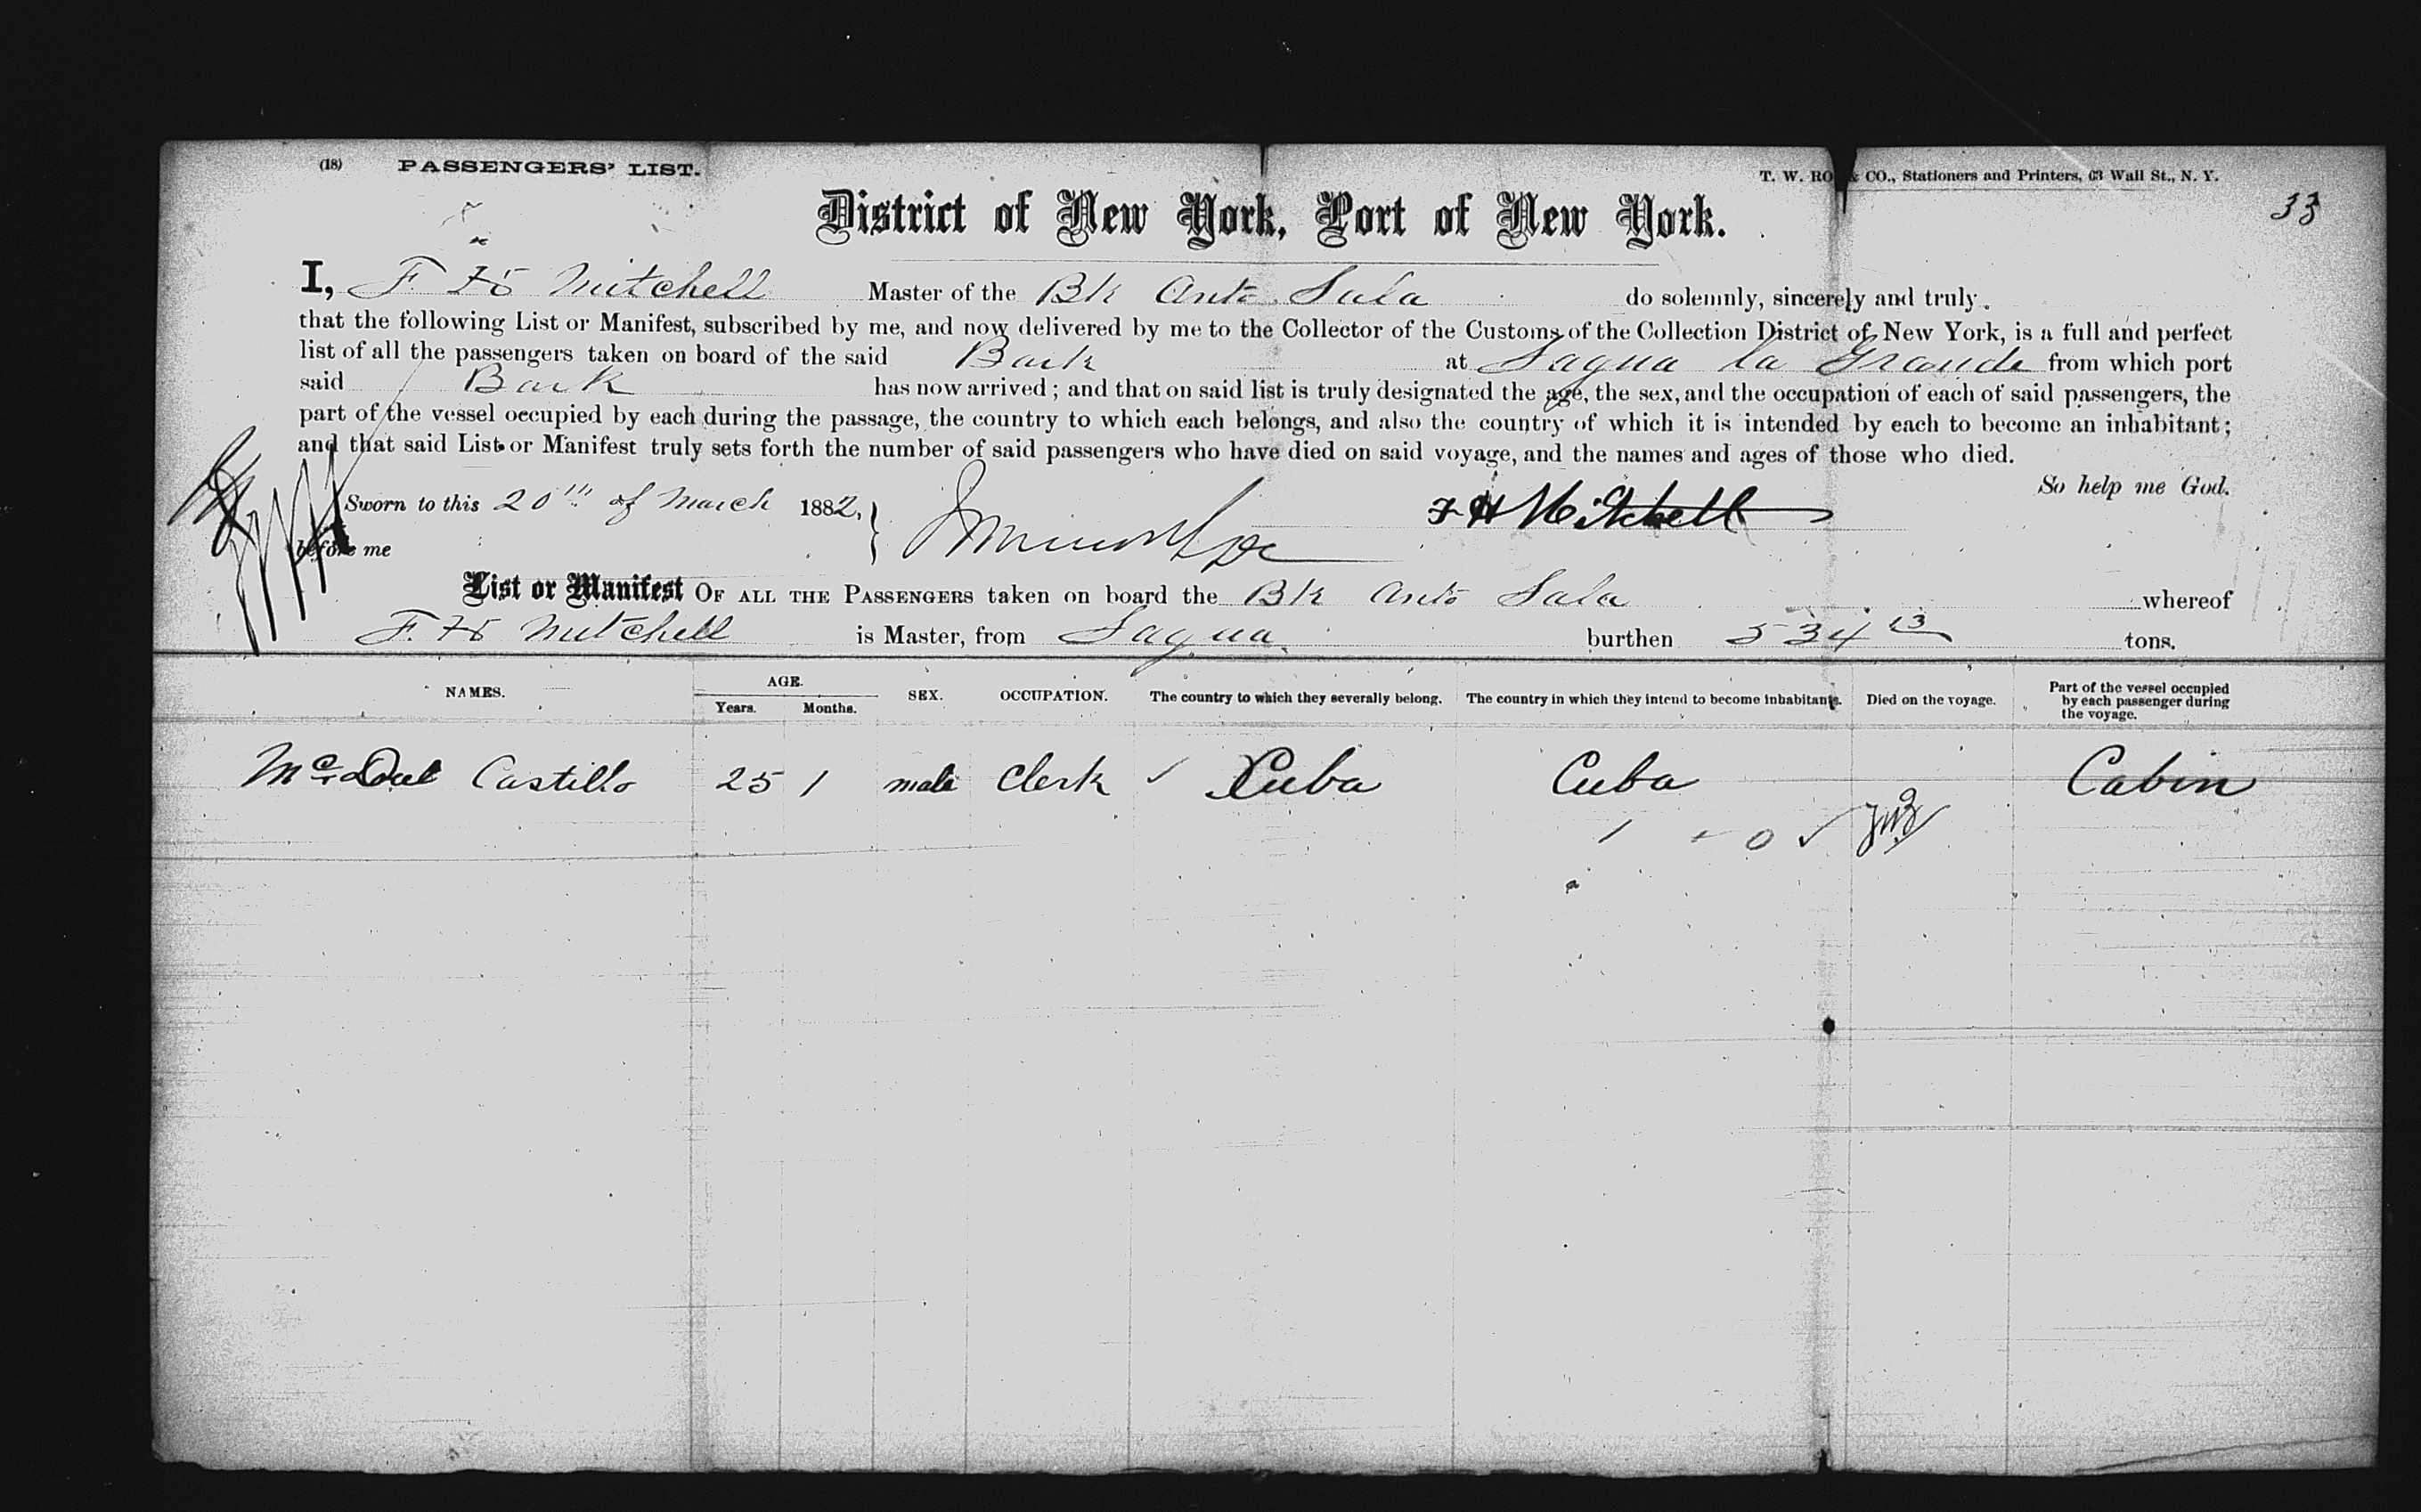 (18) PASSENGERS' LIST.
T. W. RO & CO., Stationers and Printers, 63 Wall St., N. Y.
33
District of New York, Port of New York.
I, F. H. Mitchell Master of the Bk Anto Sala do solemnly, sincerely and truly
that the following List or Manifest, subscribed by me, and now delivered by me to the Collector of the Customs of the Collection District of New York, is a full and perfect
list of all the passengers taken on board of the said Bark at Sagua la Grande from which port
said Bark has now arrived; and that on said list is truly designated the age, the sex, and the occupation of each of said passengers, the
part of the vessel occupied by each during the passage, the country to which each belongs, and also the country of which it is intended by each to become an inhabitant;
and that said List or Manifest truly sets forth the number of said passengers who have died on said voyage, and the names and ages of those who died.
So help me God.
Sworn to this 20th of March 1882, F H Mitchell
before me
List or Manifest OF ALL THE PASSENGERS taken on board the Bk Anto Sala whereof
F. H. Mitchell is Master, from Sagua. burthen 534 13 tons.
NAMES. AGE. Years. Months. SEX. OCCUPATION. The country to which they severally belong. The country in which they intend to become inhabitants. Died on the voyage. Part of the vessel occupied by each passenger during the voyage.
Mc Del Castillo 25 1 male Clerk ✓ Cuba Cuba Cabin
1 0 ✓